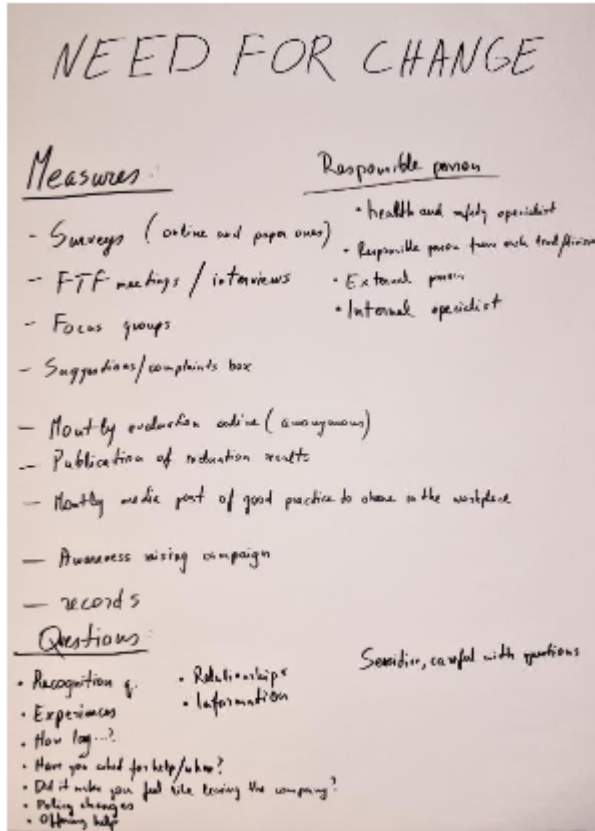 NEED FOR CHANGE
Measures:
- Surveys (online and paper ones)
- FTF meetings / interviews
- Focus groups
- Suggestions/complaints box
- Montly evaluation online (anonymous)
- Publication of evaluation results
- Montly media post of good practice to share in the workplace
- Awareness raising campaign
- records
Responsible person
• health and safety specialist
• Responsible person from each
• External person
• Internal specialist
Questions:
• Recognition q.
• Experiences
• How log...?
• Have you asked for help/when?
• Did it make you feel like leaving the company?
• Policy changes
• Offering help
• Relationships
• Information
careful with questions